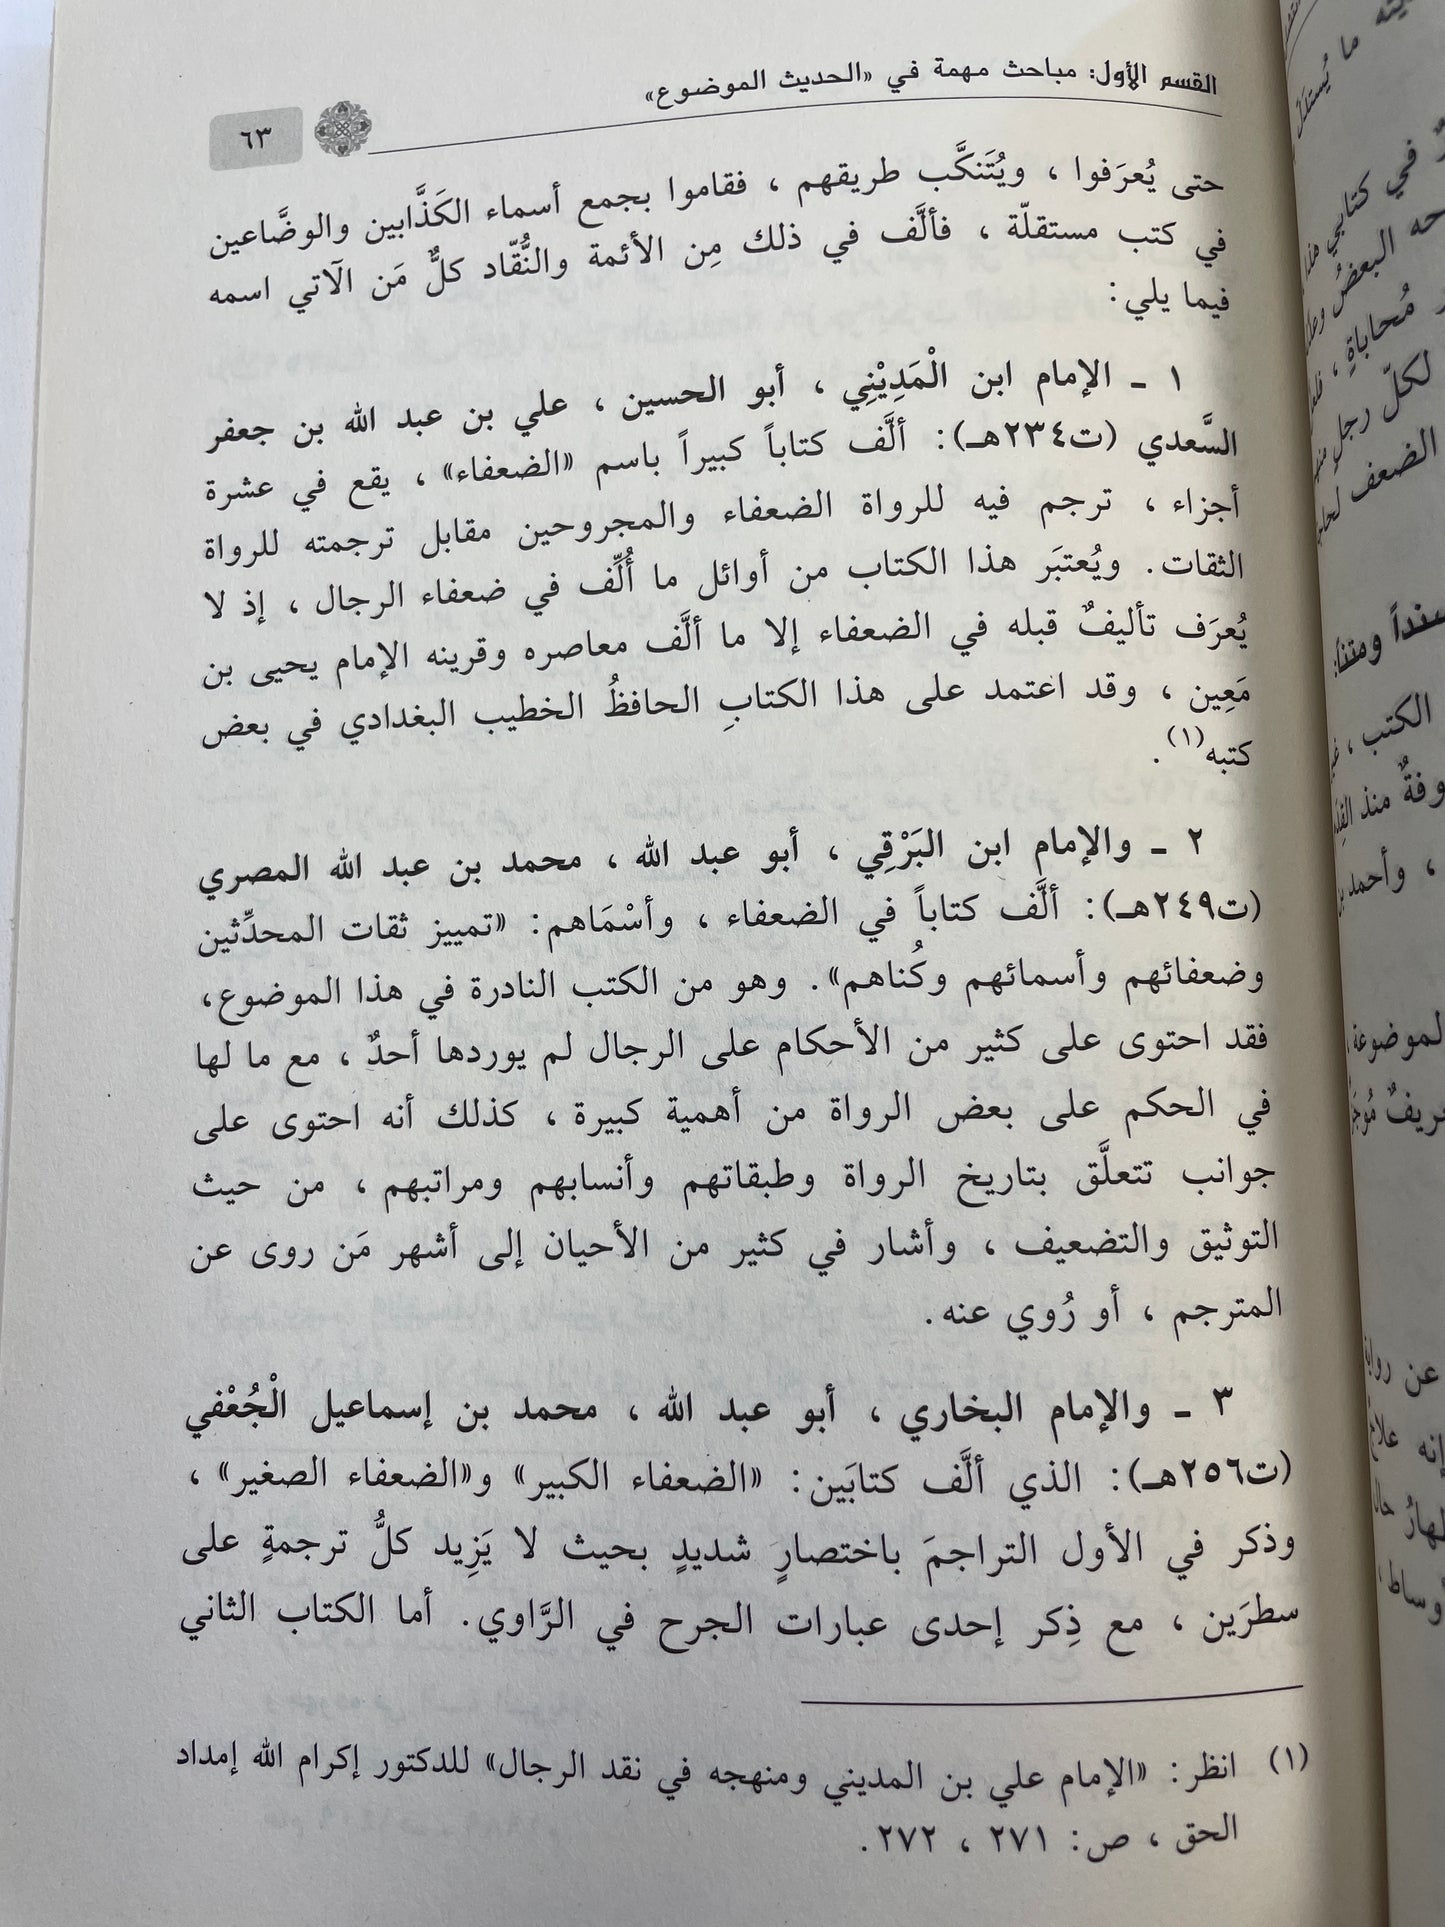 القسم الأول: مباحث مهمة في «الحديث الموضوع»
٦٣
حتى يُعرَفوا ، ويُتَنكَّب طريقهم ، فقاموا بجمع أسماء الكَذَّابين والوضَّاعين
في كتب مستقلّة ، فألَّف في ذلك مِن الأئمة والنُّقّاد كلٌّ مَن الآتي اسمه
فيما يلي:
١ ـ الإمام ابن الْمَدِيْنِي ، أبو الحسين ، علي بن عبد الله بن جعفر
السَّعدي (ت٢٣٤هـ): ألَّف كتاباً كبيراً باسم «الضعفاء» ، يقع في عشرة
أجزاء ، ترجم فيه للرواة الضعفاء والمجروحين مقابل ترجمته للرواة
الثقات. ويُعتبَر هذا الكتاب من أوائل ما أُلِّف في ضعفاء الرجال ، إذ لا
يُعرَف تأليفٌ قبله في الضعفاء إلا ما ألَّف معاصره وقرينه الإمام يحيى بن
مَعِين ، وقد اعتمد على هذا الكتابِ الحافظُ الخطيب البغدادي في بعض
كتبه(١).
٢ ـ والإمام ابن البَرْقِي ، أبو عبد الله ، محمد بن عبد الله المصري
(ت٢٤٩هـ): ألَّف كتاباً في الضعفاء ، وأسْمَاهم: «تمييز ثقات المحدِّثين
وضعفائهم وأسمائهم وكُناهم». وهو من الكتب النادرة في هذا الموضوع،
فقد احتوى على كثير من الأحكام على الرجال لم يوردها أحدٌ ، مع ما لها
في الحكم على بعض الرواة من أهمية كبيرة ، كذلك أنه احتوى على
جوانب تتعلَّق بتاريخ الرواة وطبقاتهم وأنسابهم ومراتبهم ، من حيث
التوثيق والتضعيف ، وأشار في كثير من الأحيان إلى أشهر مَن روى عن
المترجم ، أو رُوي عنه.
٣ ـ والإمام البخاري ، أبو عبد الله ، محمد بن إسماعيل الْجُعْفي
(ت٢٥٦هـ): الذي ألَّف كتابَين: «الضعفاء الكبير» و«الضعفاء الصغير» ،
وذكر في الأول التراجمَ باختصارٍ شديدٍ بحيث لا يَزِيد كلُّ ترجمةٍ على
سطرَين ، مع ذِكر إحدى عبارات الجرح في الرَّاوي. أما الكتاب الثاني
(١) انظر: «الإمام علي بن المديني ومنهجه في نقد الرجال» للدكتور إكرام الله إمداد
الحق ، ص: ٢٧١ ، ٢٧٢.